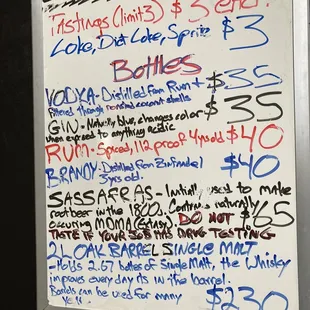 Tastings (limit 3) $3 each
Coke, Diet Coke, Sprite $3
Bottles
VODKA - Distilled from Rum + $35
filtered through toasted coconut shells
GIN - Naturally blue, changes color $35
when exposed to anything acidic
RUM - Spiced, 112 proof 4 yrs old $40
BRANDY - Distilled from Zinfandel $40
3 yrs old.
SASSAFRAS - Initially used to make
root beer in the 1800s. Contains naturally $65
occuring MDMA (Extasy). DO NOT
TASTE IF YOUR JOB HAS DRUG TESTING
2L OAK BARREL SINGLE MALT
- Holds 2.67 bottles of Single Malt, the Whiskey
improves every day its in the barrel.
Barrels can be used for many $230